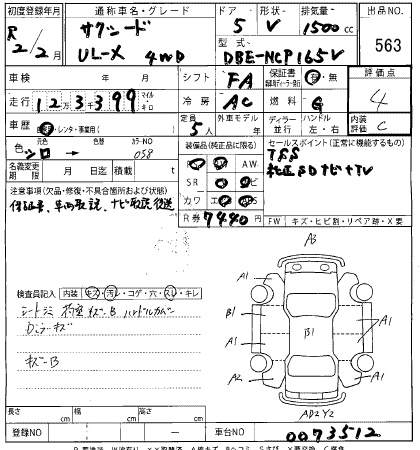 初度登録年月 通称車名・グレード ドア 形状 排気量 出品NO
R 2/2月 サクシード UL-X 4WD 5 V 1500cc
型式 DBE-NCP165V 563
車検 年 月 シフト FA 保証書 有・無 評価点
走行 12万3千399 マイル・キロ 冷房 AC 燃料 G 4
車歴 自家用・レンタ・事業用( ) 定員 5人 外車モデル ディーラー・並行 ハンドル 左・右 内装評価 C
色 シロ 元色 色替 カラーNO 058 装備品(純正品に限る) セールスポイント(正常に機能するもの)
名義変更期限 月 日迄 積載 t PS PW AW TSS
SR ナビ 純正SDナビ+TV
注意事項(欠品・修復・不具合箇所および状態) カワ エアB
保証書、車両取説、ナビ取説後送 R券 7440円 FW キズ・ヒビ割・リペア跡・X要
A3
検査員記入 内装 キズ・汚レ・コゲ・穴・スレ・キレ A1 A1
シートシミ 荷室キズB ハンドルカバー B1
Dミラーキズ A1 B1 A1
キズ-B A2 A1
AD2Y2
長さ cm 幅 cm 高さ cm
登録NO ー 車台NO 0073512